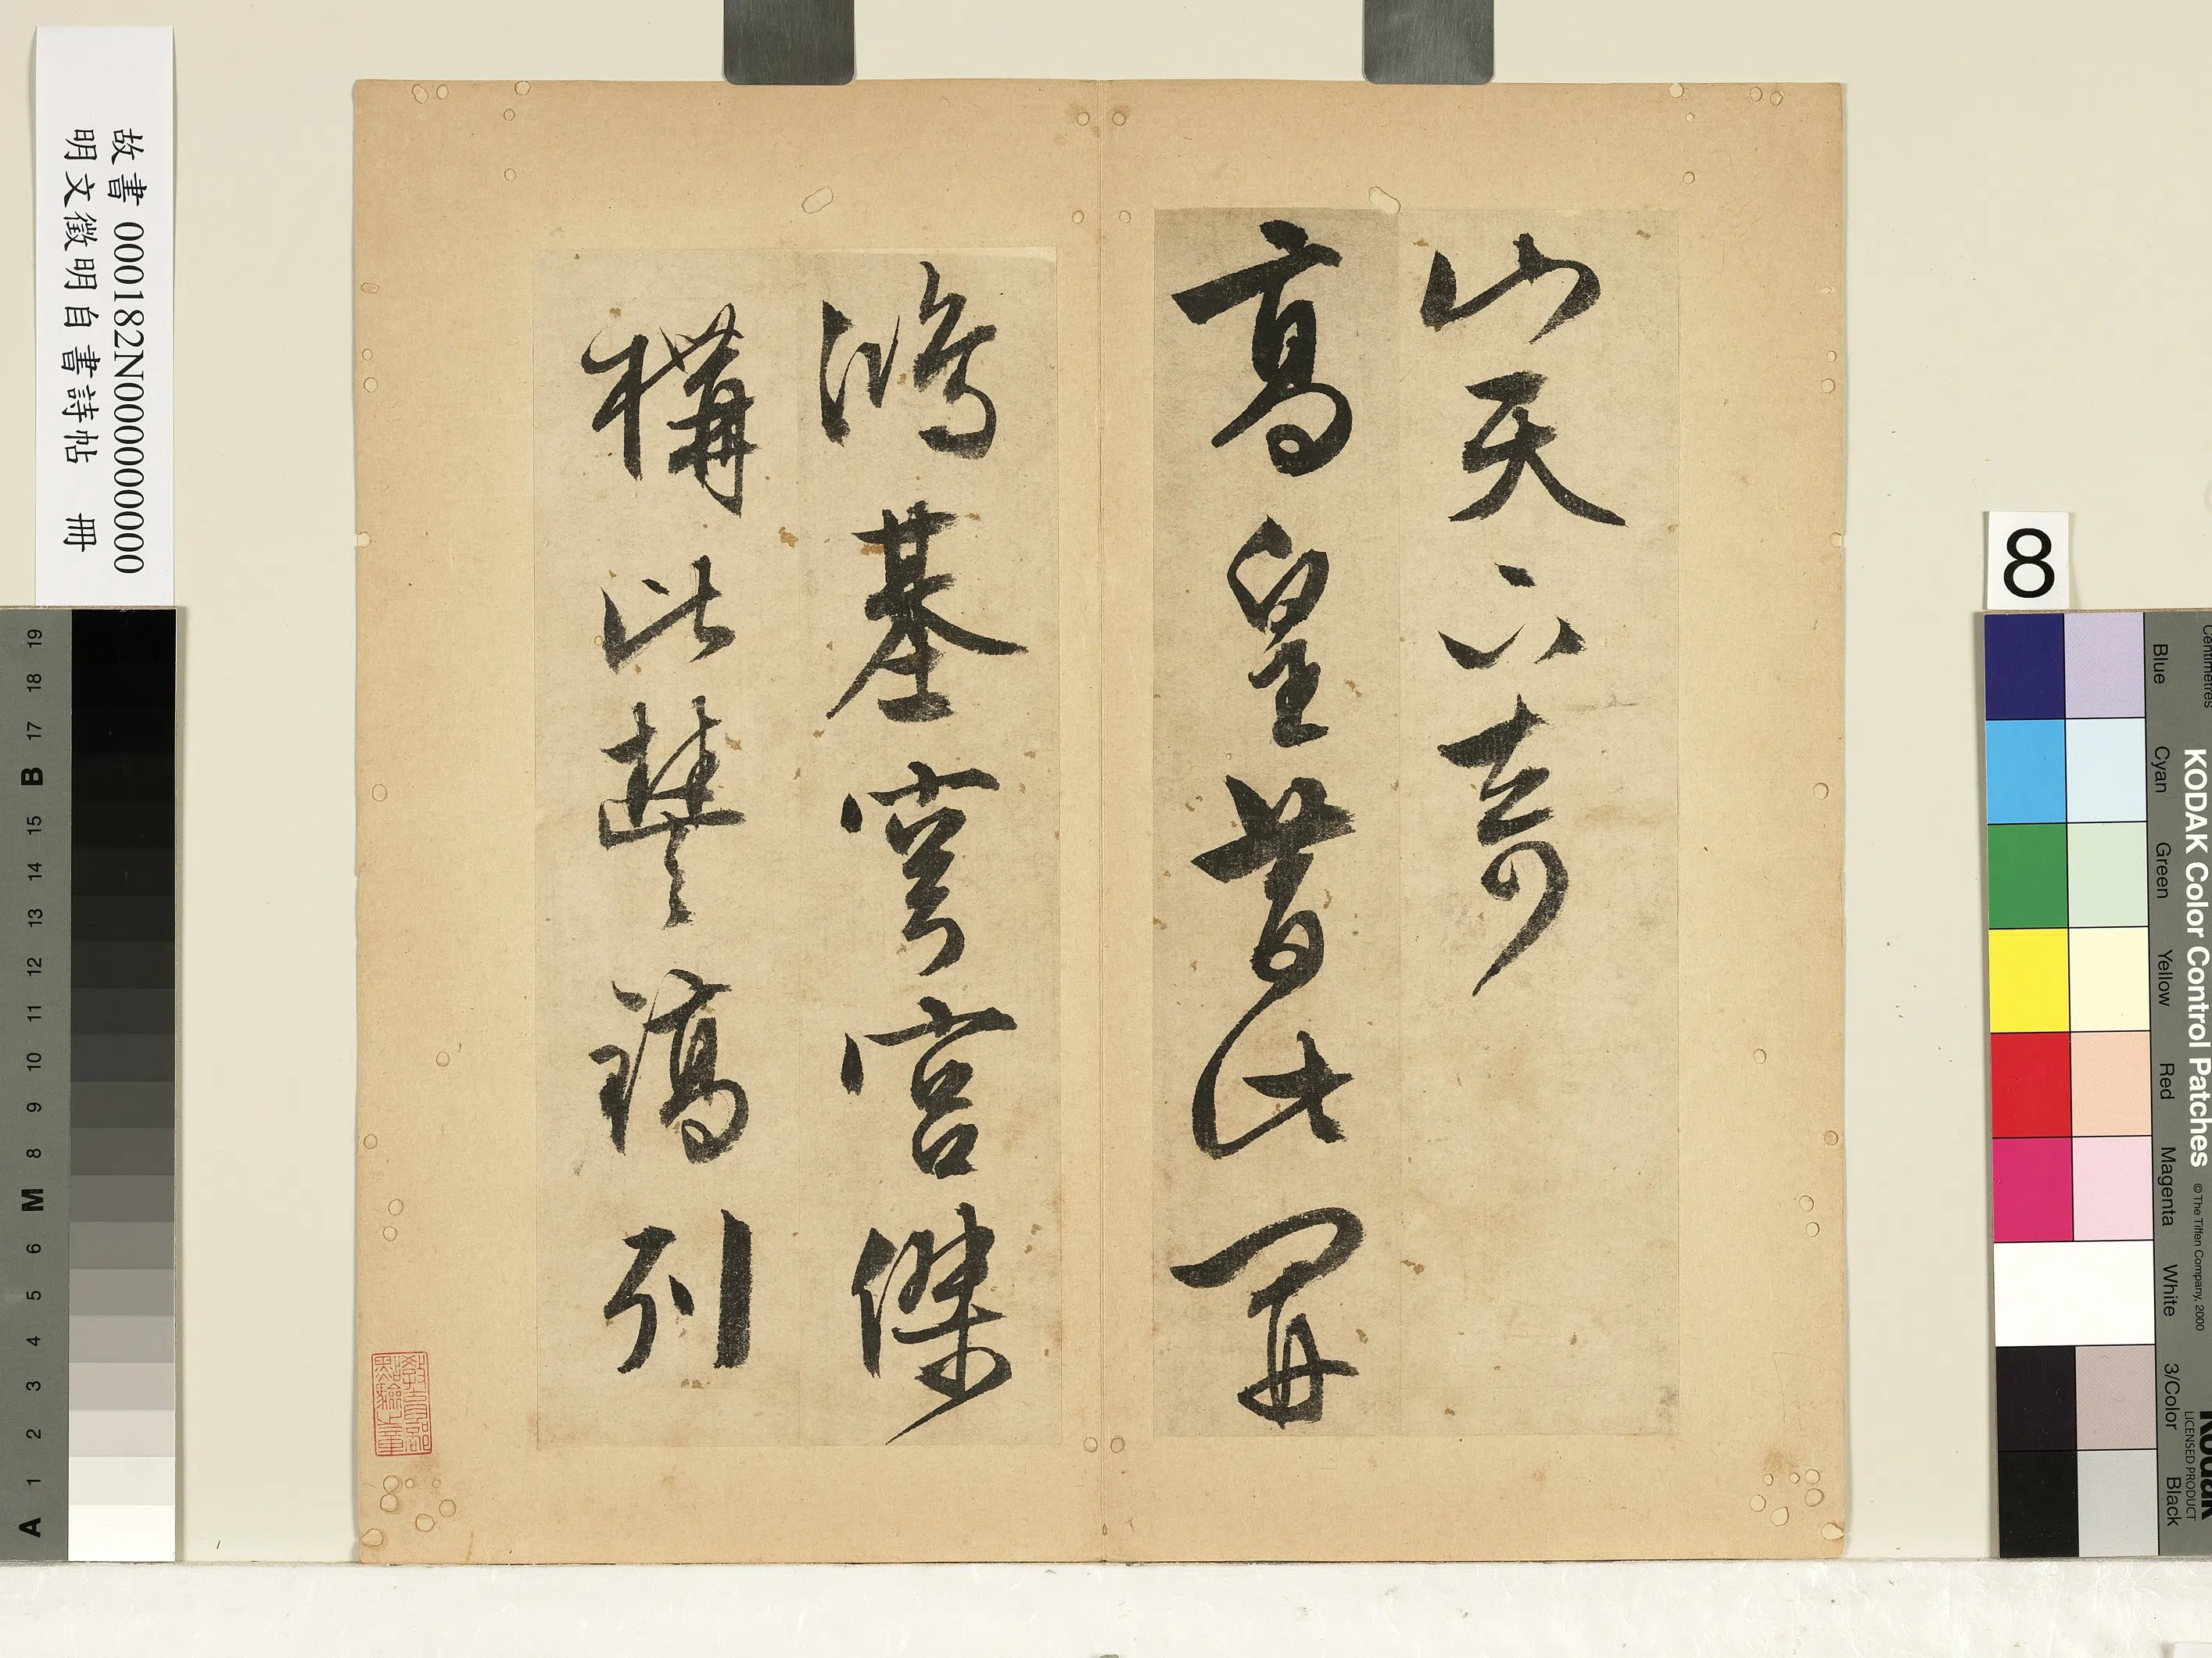 山天下奇
高皇昔此開
鴻基穹宮傑
構比豐鎬列
教育部
點驗之章
故書 000182N000000000
明文徵明自書詩帖 冊
8
KODAK Color Control Patches
© The Tiffen Company, 2000
Kodak
LICENSED PRODUCT
Centimetres
Blue
Cyan
Green
Yellow
Red
Magenta
White
3/Color
Black
19
18
17
B
15
14
13
12
11
10
9
8
M
6
5
4
3
2
1
A